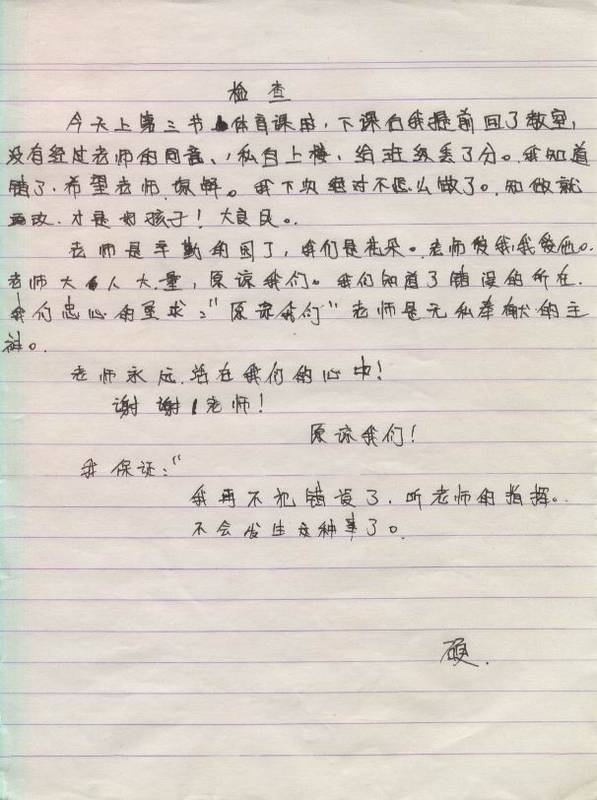 检查
今天上第三节体育课时,下课后我提前回了教室,
没有经过老师的同意、私自上楼,给班级丢了分。我知道
错了,希望老师.原解。我下次绝对不怎么做了。知做就
改.才是好孩子!大良民。
老师是辛勤的园丁,我们是花朵。老师爱我,我爱他。
老师大人大量,原谅我们。我们知道了错误的所在.
我们忠心的恳求:"原谅我们"老师是无私奉献的主
神。
老师永远.活在我们的心中!
谢谢老师!
原谅我们!
我保证:"
我再不犯错误了.听老师的指挥。
不会发生这种事了。
硬.